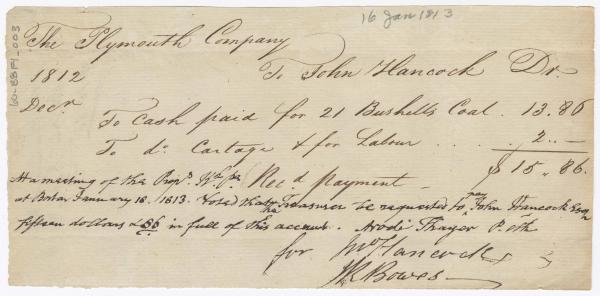 16 Jan 1813
The Plymouth Company
1812 To John Hancock Dr.
Decr. To Cash paid for 21 Bushells Coal. 13.86
To do. Cartage & for Labour . . . . 2..—
$15.86.
At a meeting of the Propr. Recd. payment —
at Boston January 18. 1813. Voted that the Treasurer be requested to pay John Hancock Esqr
fifteen dollars & 86 in full of this account. Arodi Thayer P. Clk
for Jno Hancock
Bowes